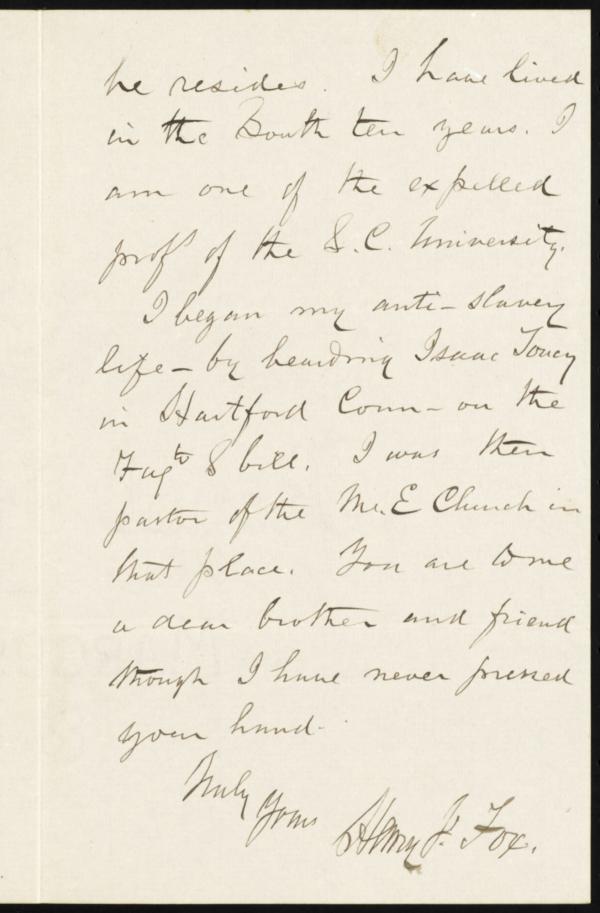 he resides. I have lived
in the South ten years. I
am one of the expelled
profs of the S. C. University.
I began my anti-slavery
life - by hearding Isaac Toucy
in Hartford Conn - on the
Fugte S bill. I was then
pastor of the M. E Church in
that place. You are to me
a dear brother and friend
though I have never pressed
your hand.
Truly Yours
Henry J. Fox.